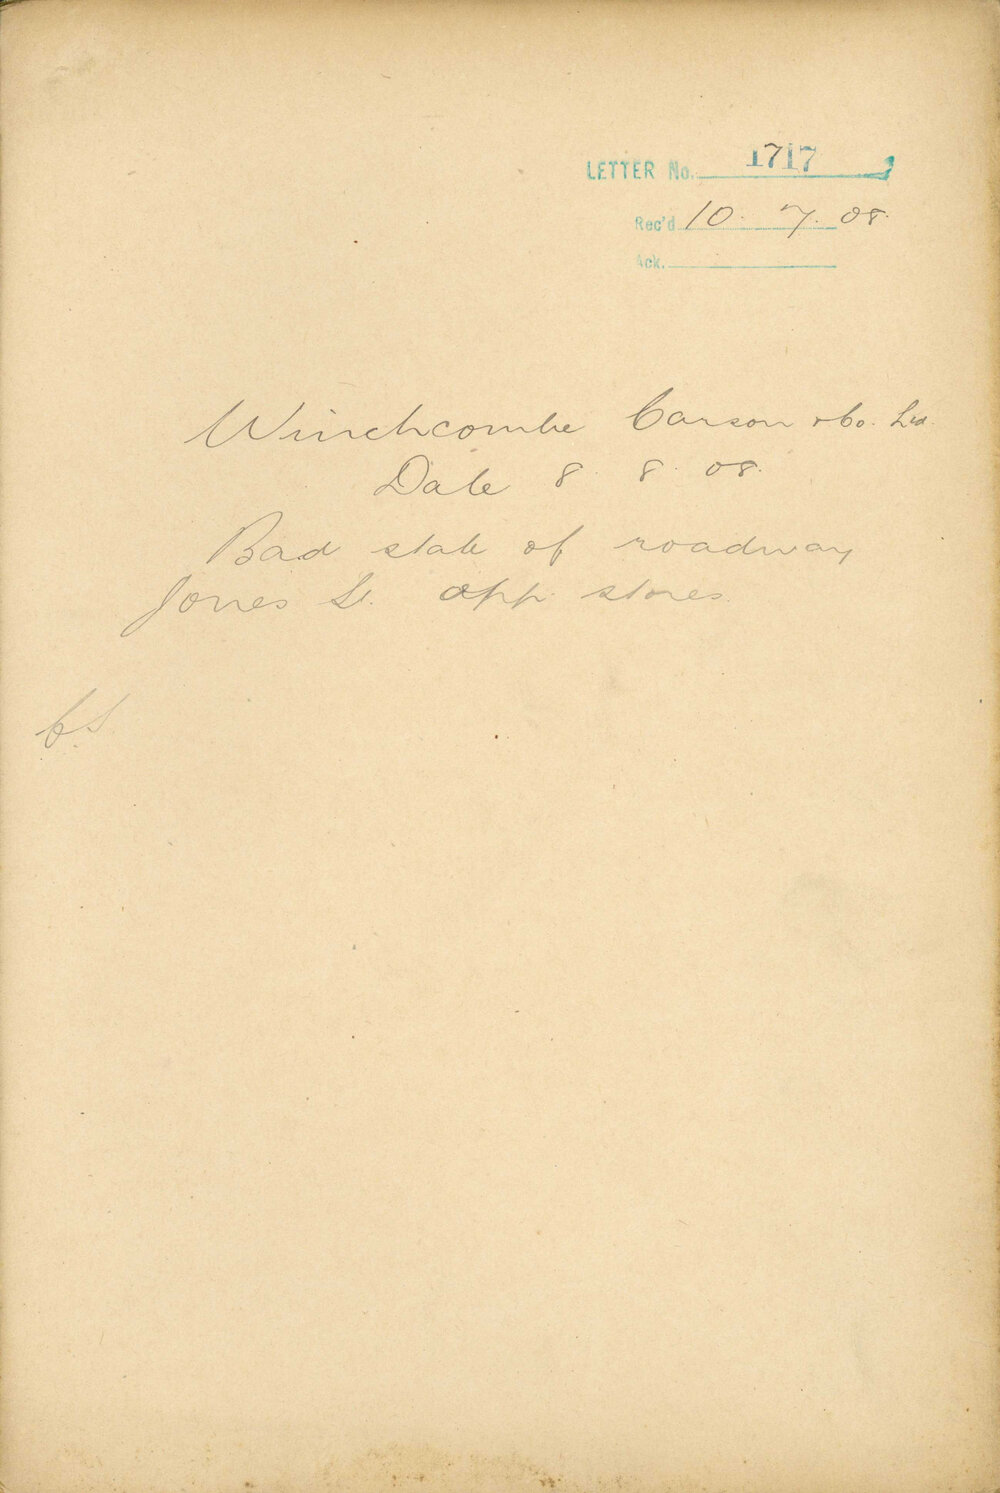 LETTER No. 1717
Rec'd 10. 7. 08.
Ack.
Winchcombe Carson & Co. Ltd.
Date 8. 8. 08.
Bad state of roadway
Jones St. opp. stores.
C.S.